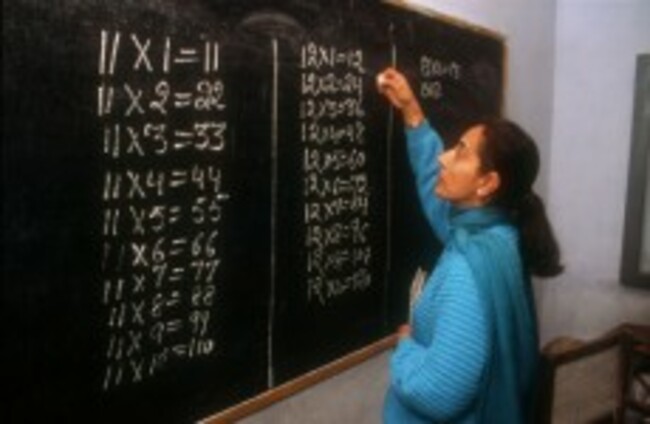 11 X 1 = 11
11 X 2 = 22
11 X 3 = 33
11 X 4 = 44
11 X 5 = 55
11 X 6 = 66
11 X 7 = 77
11 X 8 = 88
11 X 9 = 99
11 X 10 = 110
12X1=12
12X2=24
12X3=36
12X4=48
12X5=60
12X6=72
12X7=84
12X8=96